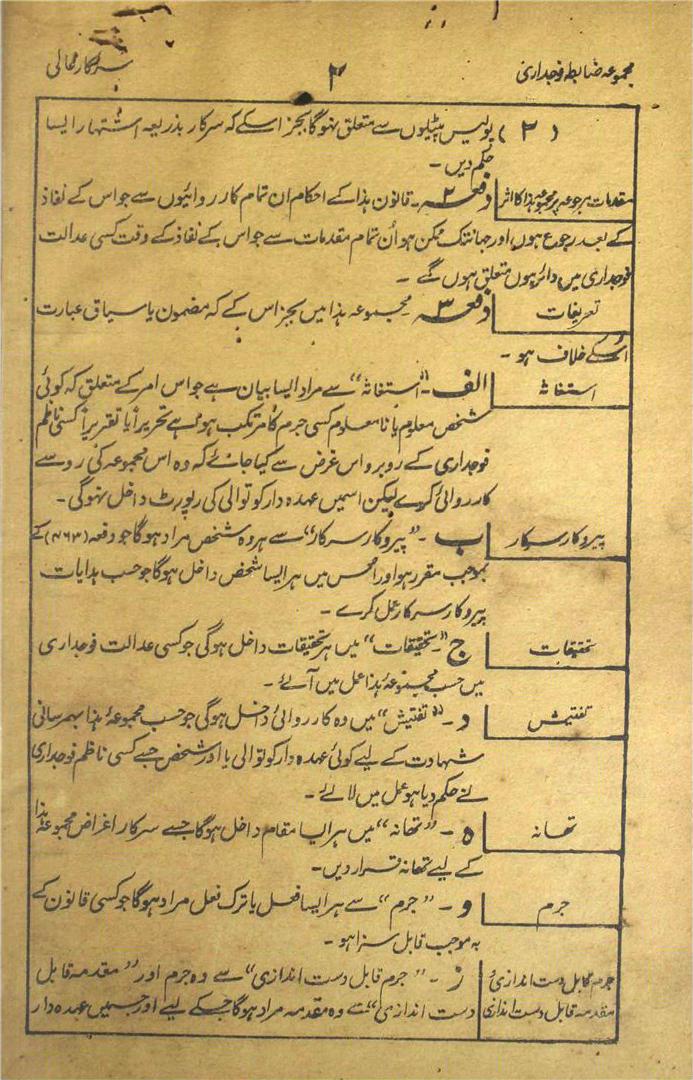 مجموعہ ضابطہ فوجداری
۲
سرکار عالی
(۲) پولیس پٹیلوں سے متعلق نہوگا بجز اسکے کہ سرکار بذریعہ اشتہار ایسا
حکم دیں ۔
مقدمات مرجوعہ پر مجموعہ ہذا کا اثر
دفعہ ۲ ۔ قانون ہذا کے احکام ان تمام کارروائیوں سے جو اس کے نفاذ
کے بعد رجوع ہوں اور جہانتک ممکن ہو اُن تمام مقدمات سے جو اس کے نفاذ کے وقت کسی عدالت
فوجداری میں دائر ہوں متعلق ہوں گے ۔
تعریفات
دفعہ ۳ ۔ مجموعہ ہذا میں بجز اس کے کہ مضمون یا سیاق عبارت
اُسکے خلاف ہو ۔
استغاثہ
الف ۔ "استغاثہ" سے مراد ایسا بیان ہے جو اس امر کے متعلق کہ کوئی
شخص معلوم یا نا معلوم کسی جرم کا مرتکب ہوا ہے تحریراً یا تقریراً کسی ناظم
فوجداری کے روبرو اس غرض سے کیا جائے کہ وہ اس مجموعہ کی رو سے
کارروائی کرے لیکن اسمیں عہدہ دار کوتوالی کی رپورٹ داخل نہوگی ۔
پیروکار سرکار
ب ۔ "پیروکار سرکار" سے ہر وہ شخص مراد ہوگا جو دفعہ (۴۶۳) کے
بموجب مقرر ہو اور اس میں ہر ایسا شخص داخل ہوگا جو حسب ہدایات
پیروکار سرکار عمل کرے ۔
تحقیقات
ج ۔ "تحقیقات" میں ہر تحقیقات داخل ہوگی جو کسی عدالت فوجداری
میں حسب مجموعۂ ہذا عمل میں آئے ۔
تفتیش
د ۔ "تفتیش" میں وہ کارروائی داخل ہوگی جو حسب مجموعۂ ہذا بہم رسانی
شہادت کے لیے کوئی عہدہ دار کوتوالی یا اور شخص جسے کسی ناظم فوجداری
نے حکم دیا ہو عمل میں لائے ۔
تھانہ
ہ ۔ "تھانہ" میں ہر ایسا مقام داخل ہوگا جسے سرکار اغراض مجموعۂ ہذا
کے لیے تھانہ قرار دیں ۔
جرم
و ۔ "جرم" سے ہر ایسا فعل یا ترک فعل مراد ہوگا جو کسی قانون کے
بہ موجب قابل سزا ہو ۔
جرم قابل دست اندازی و
مقدمہ قابل دست اندازی
ز ۔ "جرم قابل دست اندازی" سے وہ جرم اور "مقدمہ قابل
دست اندازی" سے وہ مقدمہ مراد ہوگا جسکے لیے اور جسمیں عہدہ دار